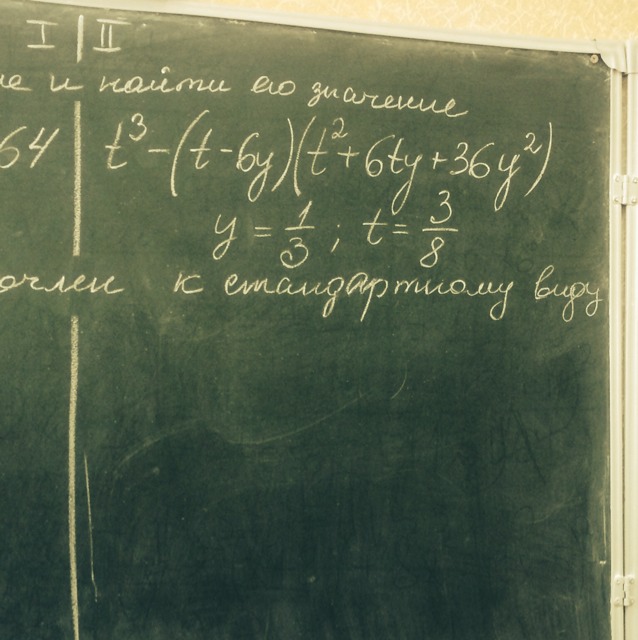 I II
и найти его значение
64 t³ - (t - 6y)(t² + 6ty + 36y²)
y = 1/3 ; t = 3/8
к стандартному виду